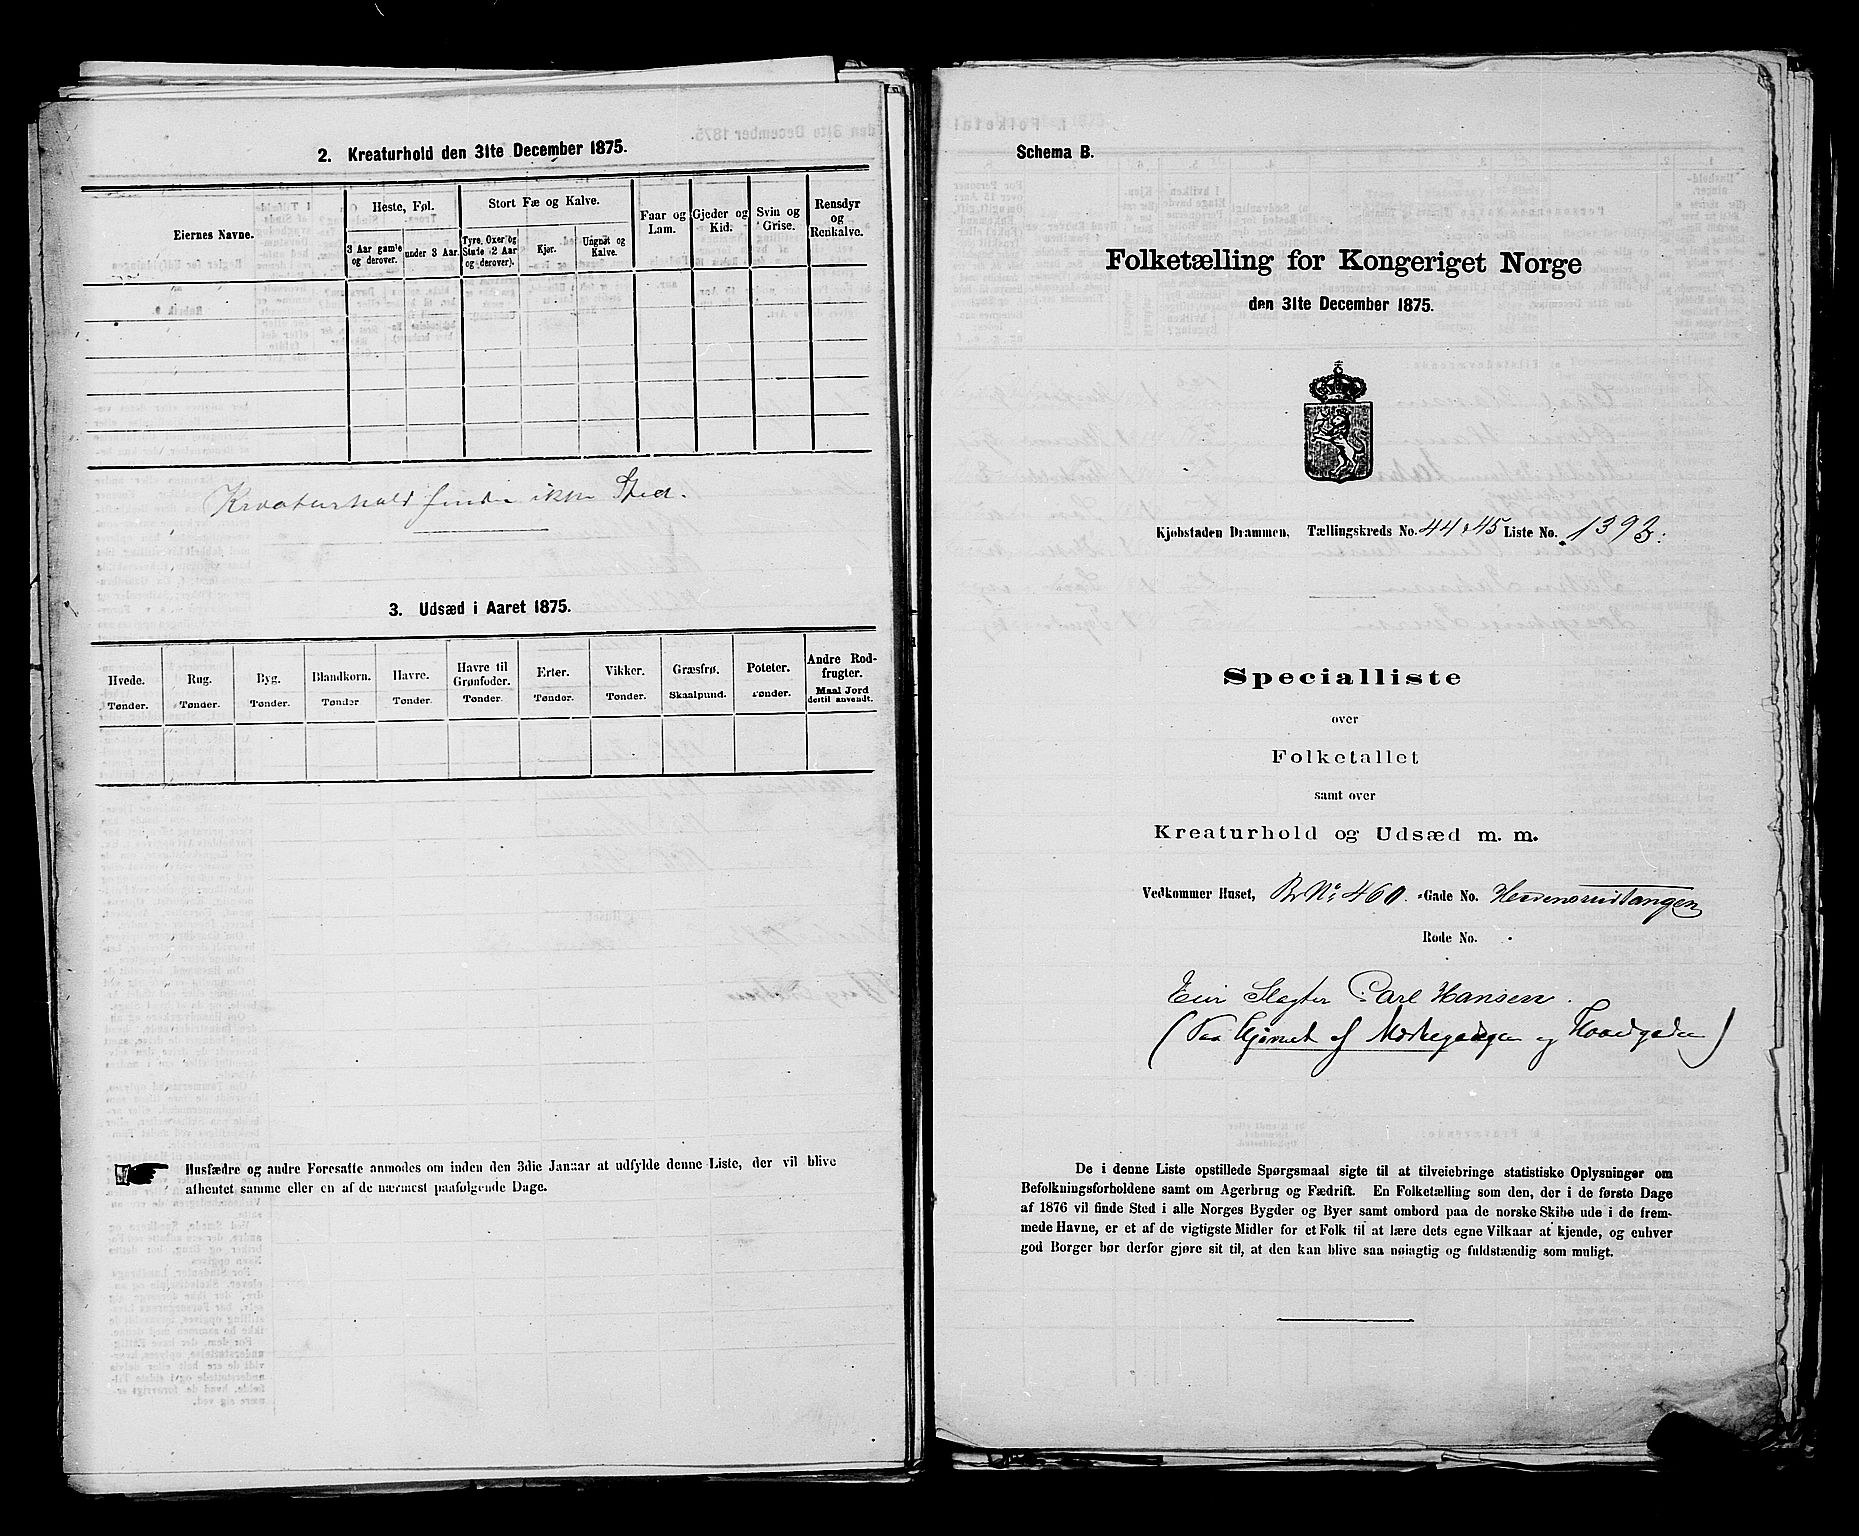 2. Kreaturhold den 31te December 1875.
Eiernes Navne.
Heste, Føl.
3 Aar gamle og derover.
under 3 Aar.
Stort Fæ og Kalve.
Tyre, Oxer og Stude (2 Aar og derover).
Kjør.
Ungnøt og Kalve.
Faar og Lam.
Gjeder og Kid.
Svin og Grise.
Rensdyr og Renkalve.
Kreaturhold finder ikke Sted.
3. Udsæd i Aaret 1875.
Hvede. Tønder.
Rug. Tønder.
Byg. Tønder.
Blandkorn. Tønder
Havre. Tønder.
Havre til Grønfoder. Tønder.
Erter. Tønder.
Vikker. Tønder.
Græsfrø. Skaalpund.
Poteter. Tønder.
Andre Rodfrugter. Maal Jord dertil anvendt.
Husfædre og andre Foresatte anmodes om inden den 3die Januar at udfylde denne Liste, der vil blive
afhentet samme eller en af de nærmest paafølgende Dage.
Schema B.
Folketælling for Kongeriget Norge
den 31te December 1875.
Kjøbstaden Drammen, Tællingskreds No. 44 & 45 Liste No. 1393.
Specialliste
over
Folketallet
samt over
Kreaturhold og Udsæd m. m.
Vedkommer Huset, Br No 460. Gade No.
Rode No.
Eier Slagter Carl Hansen.
(Paa Hjørnet af og Hovedgaden)
De i denne Liste opstillede Spørgsmaal sigte til at tilveiebringe statistiske Oplysninger om
Befolkningsforholdene samt om Agerbrug og Fædrift. En Folketælling som den, der i de første Dage
af 1876 vil finde Sted i alle Norges Bygder og Byer samt ombord paa de norske Skibe ude i de frem-
mede Havne, er et af de vigtigste Midler for et Folk til at lære dets egne Vilkaar at kjende, og enhver
god Borger bør derfor gjøre sit til, at den kan blive saa nøiagtig og fuldstændig som muligt.